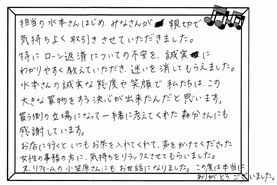 担当の水本さんはじめ、みなさんが 親切で
気持ちよく取引きさせていただきました。
特にローン返済についての不安を、誠実に
わかりやすく教えていただき、迷いを消してもらえました。
水本さんの誠実な態度や笑顔で私たちは、この
大きな買物をする決心が出来たんだと思います。
買う側の立場になって一緒に考えてくれた 森分さんにも
感謝しています。
お店に行くといつもお茶を入れてくれて、声をかけてくださった
女性の事務の方に、気持ちをリラックスさせてもらいました。
又、リフォームの小笠原さんにもお世話になりました。この度は本当に
ありがとうございました。